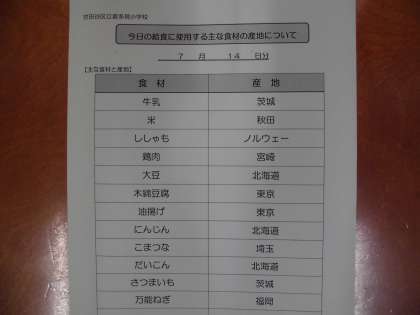 世田谷区立喜多見小学校
今日の給食に使用する主な食材の産地について
7 月 14 日分
【主な食材と産地】
食 材 産 地
牛乳 茨城
米 秋田
ししゃも ノルウェー
鶏肉 宮崎
大豆 北海道
木綿豆腐 東京
油揚げ 東京
にんじん 北海道
こまつな 埼玉
だいこん 北海道
さつまいも 茨城
万能ねぎ 福岡